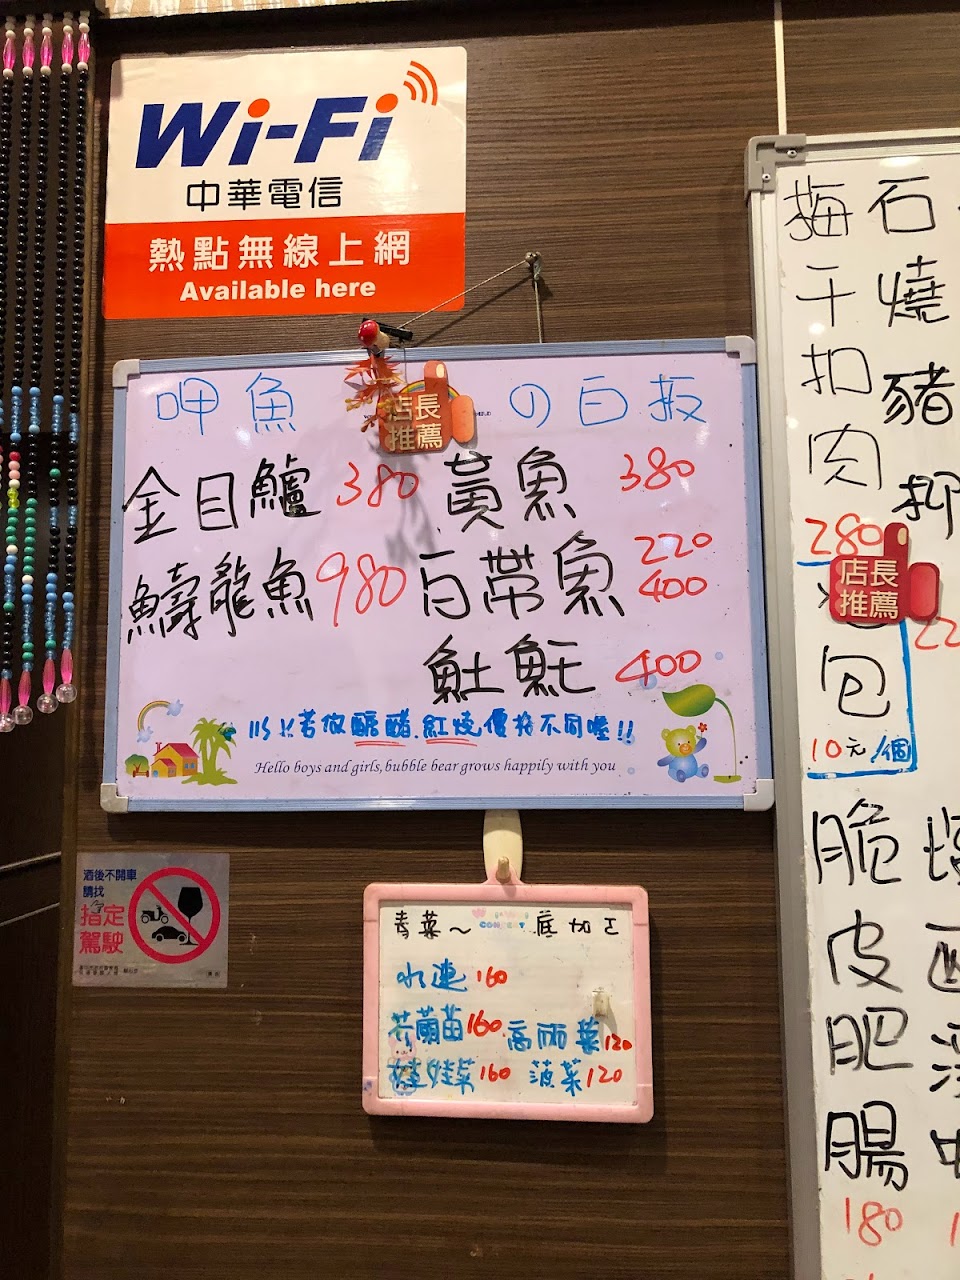 Wi-Fi
中華電信
熱點無線上網
Available here
呷魚
の白板
店長
推薦
金目鱸 380
黃魚 380
鱘龍魚 980
白帶魚 220
400
魠 400
若做醋醋.紅燒.價格不同喔!!
Hello boys and girls, bubble bear grows happily with you
酒後不開車
請找
指定
駕駛
青菜~
水蓮 160
160
高麗菜 120
娃娃菜 160
菠菜 120
梅干扣肉
280
店長
推薦
包
10元/個
石燒豬
脆皮肥腸
180